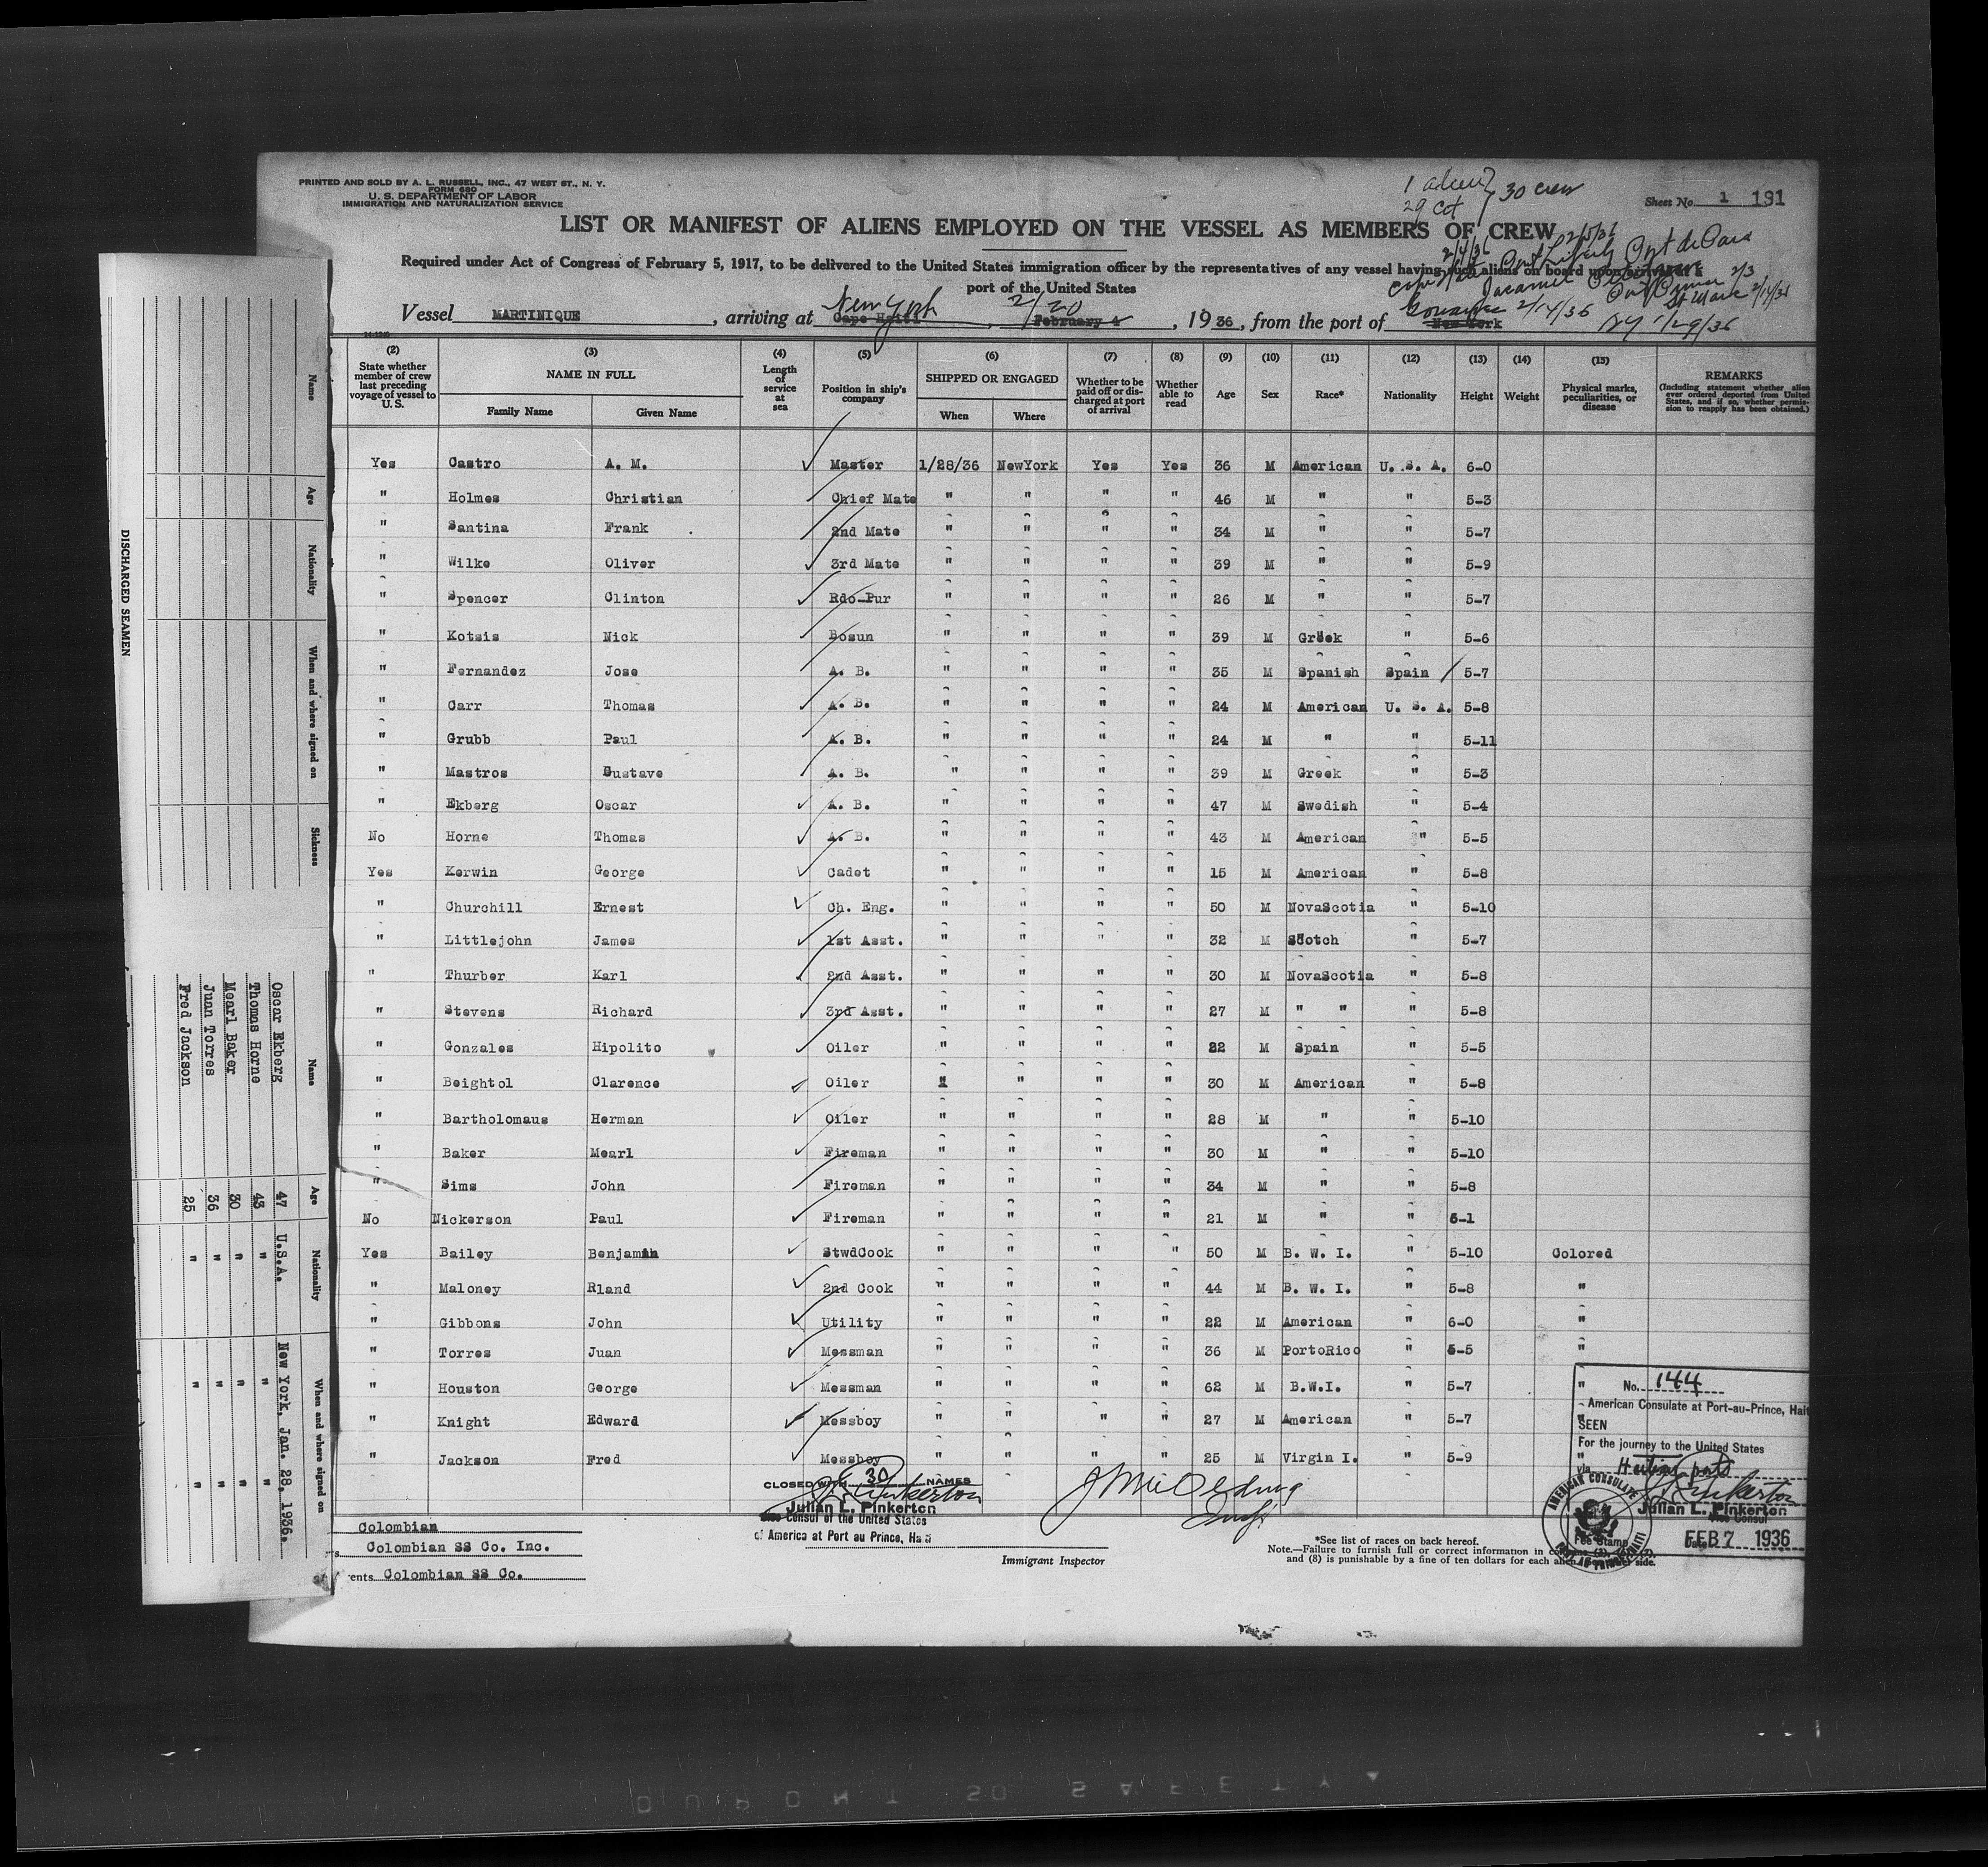 PRINTED AND SOLD BY A. L. RUSSELL, INC., 47 WEST ST., N. Y.
FORM 680
U. S. DEPARTMENT OF LABOR
IMMIGRATION AND NATURALIZATION SERVICE
30 crew
Sheet No. 1 191
LIST OR MANIFEST OF ALIENS EMPLOYED ON THE VESSEL AS MEMBERS OF CREW
Required under Act of Congress of February 5, 1917, to be delivered to the United States immigration officer by the representatives of any vessel having such aliens on board upon arrival at a
port of the United States
New York 2/20
Vessel MARTINIQUE, arriving at Cape Haiti, February 4, 1936, from the port of New York
(2) (3) (4) (5) (6) (7) (8) (9) (10) (11) (12) (13) (14) (15)
State whether member of crew last preceding voyage of vessel to U.S. NAME IN FULL Family Name Given Name Length of service at sea Position in ship's company SHIPPED OR ENGAGED When Where Whether to be paid off or discharged at port of arrival Whether able to read Age Sex Race* Nationality Height Weight Physical marks, peculiarities, or disease REMARKS (Including statement whether alien ever ordered deported from United States, and if so, whether permission to reapply has been obtained.)
Yes Castro A. M. Master 1/28/36 NewYork Yes Yes 36 M American U. S. A. 6-0
" Holmes Christian Chief Mate " " " " 46 M " " 5-3
" Santina Frank 2nd Mate " " " " 34 M " " 5-7
" Wilke Oliver 3rd Mate " " " " 39 M " " 5-9
" Spencer Clinton Rdo-Pur " " " " 26 M " " 5-7
" Kotsis Nick Bosun " " " " 39 M Greek " 5-6
" Fernandez Jose A. B. " " " " 35 M Spanish Spain 5-7
" Carr Thomas A. B. " " " " 24 M American U. S. A. 5-8
" Grubb Paul A. B. " " " " 24 M " " 5-11
" Mastros Gustave A. B. " " " " 39 M Greek " 5-3
" Ekberg Oscar A. B. " " " " 47 M Swedish " 5-4
No Horne Thomas A. B. " " " " 43 M American " 5-5
Yes Kerwin George Cadet " " " " 15 M American " 5-8
" Churchill Ernest Ch. Eng. " " " " 50 M NovaScotia " 5-10
" Littlejohn James 1st Asst. " " " " 32 M Scotch " 5-7
" Thurber Karl 2nd Asst. " " " " 30 M NovaScotia " 5-8
" Stevens Richard 3rd Asst. " " " " 27 M " " " 5-8
" Gonzales Hipolito Oiler " " " " 22 M Spain " 5-5
" Beightol Clarence Oiler " " " " 30 M American " 5-8
" Bartholomaus Herman Oiler " " " " 28 M " " 5-10
" Baker Mearl Fireman " " " " 30 M " " 5-10
" Sims John Fireman " " " " 34 M " " 5-8
No Nickerson Paul Fireman " " " " 21 M " " 6-1
Yes Bailey Benjamin StwdCook " " " " 50 M B. W. I. " 5-10 Colored
" Maloney Rland 2nd Cook " " " " 44 M B. W. I. " 5-8 "
" Gibbons John Utility " " " " 22 M American " 6-0 "
" Torres Juan Messman " " " " 36 M PortoRico " 5-5 "
" Houston George Messman " " " " 62 M B.W.I. " 5-7 "
" Knight Edward Messboy " " " " 27 M American " 5-7 "
" Jackson Fred Messboy " " " " 25 M Virgin I. " 5-9 "
No. 144
American Consulate at Port-au-Prince, Hait
SEEN
For the journey to the United States
via Haitian ports
Julian L. Pinkerton
Vice Consul
Date FEB 7 1936
AMERICAN CONSULATE
Fee Stamp
CLOSED WITH 30 NAMES
Julian L. Pinkerton
Vice Consul of the United States
of America at Port au Prince, Haiti
Immigrant Inspector
Colombian
Colombian SS Co. Inc.
ents Colombian SS Co.
*See list of races on back hereof.
Note.—Failure to furnish full or correct information in
and (8) is punishable by a fine of ten dollars for each alien side.
DISCHARGED SEAMEN
Name Age Nationality When and where signed on Sickness
Name Age Nationality When and where signed on
Oscar Ekberg 47 U.S.A. New York, Jan. 28, 1936.
Thomas Horne 43 " " "
Mearl Baker 30 " " "
Juan Torres 36 " " "
Fred Jackson 25 " " "
DUPONT SO SAFETY